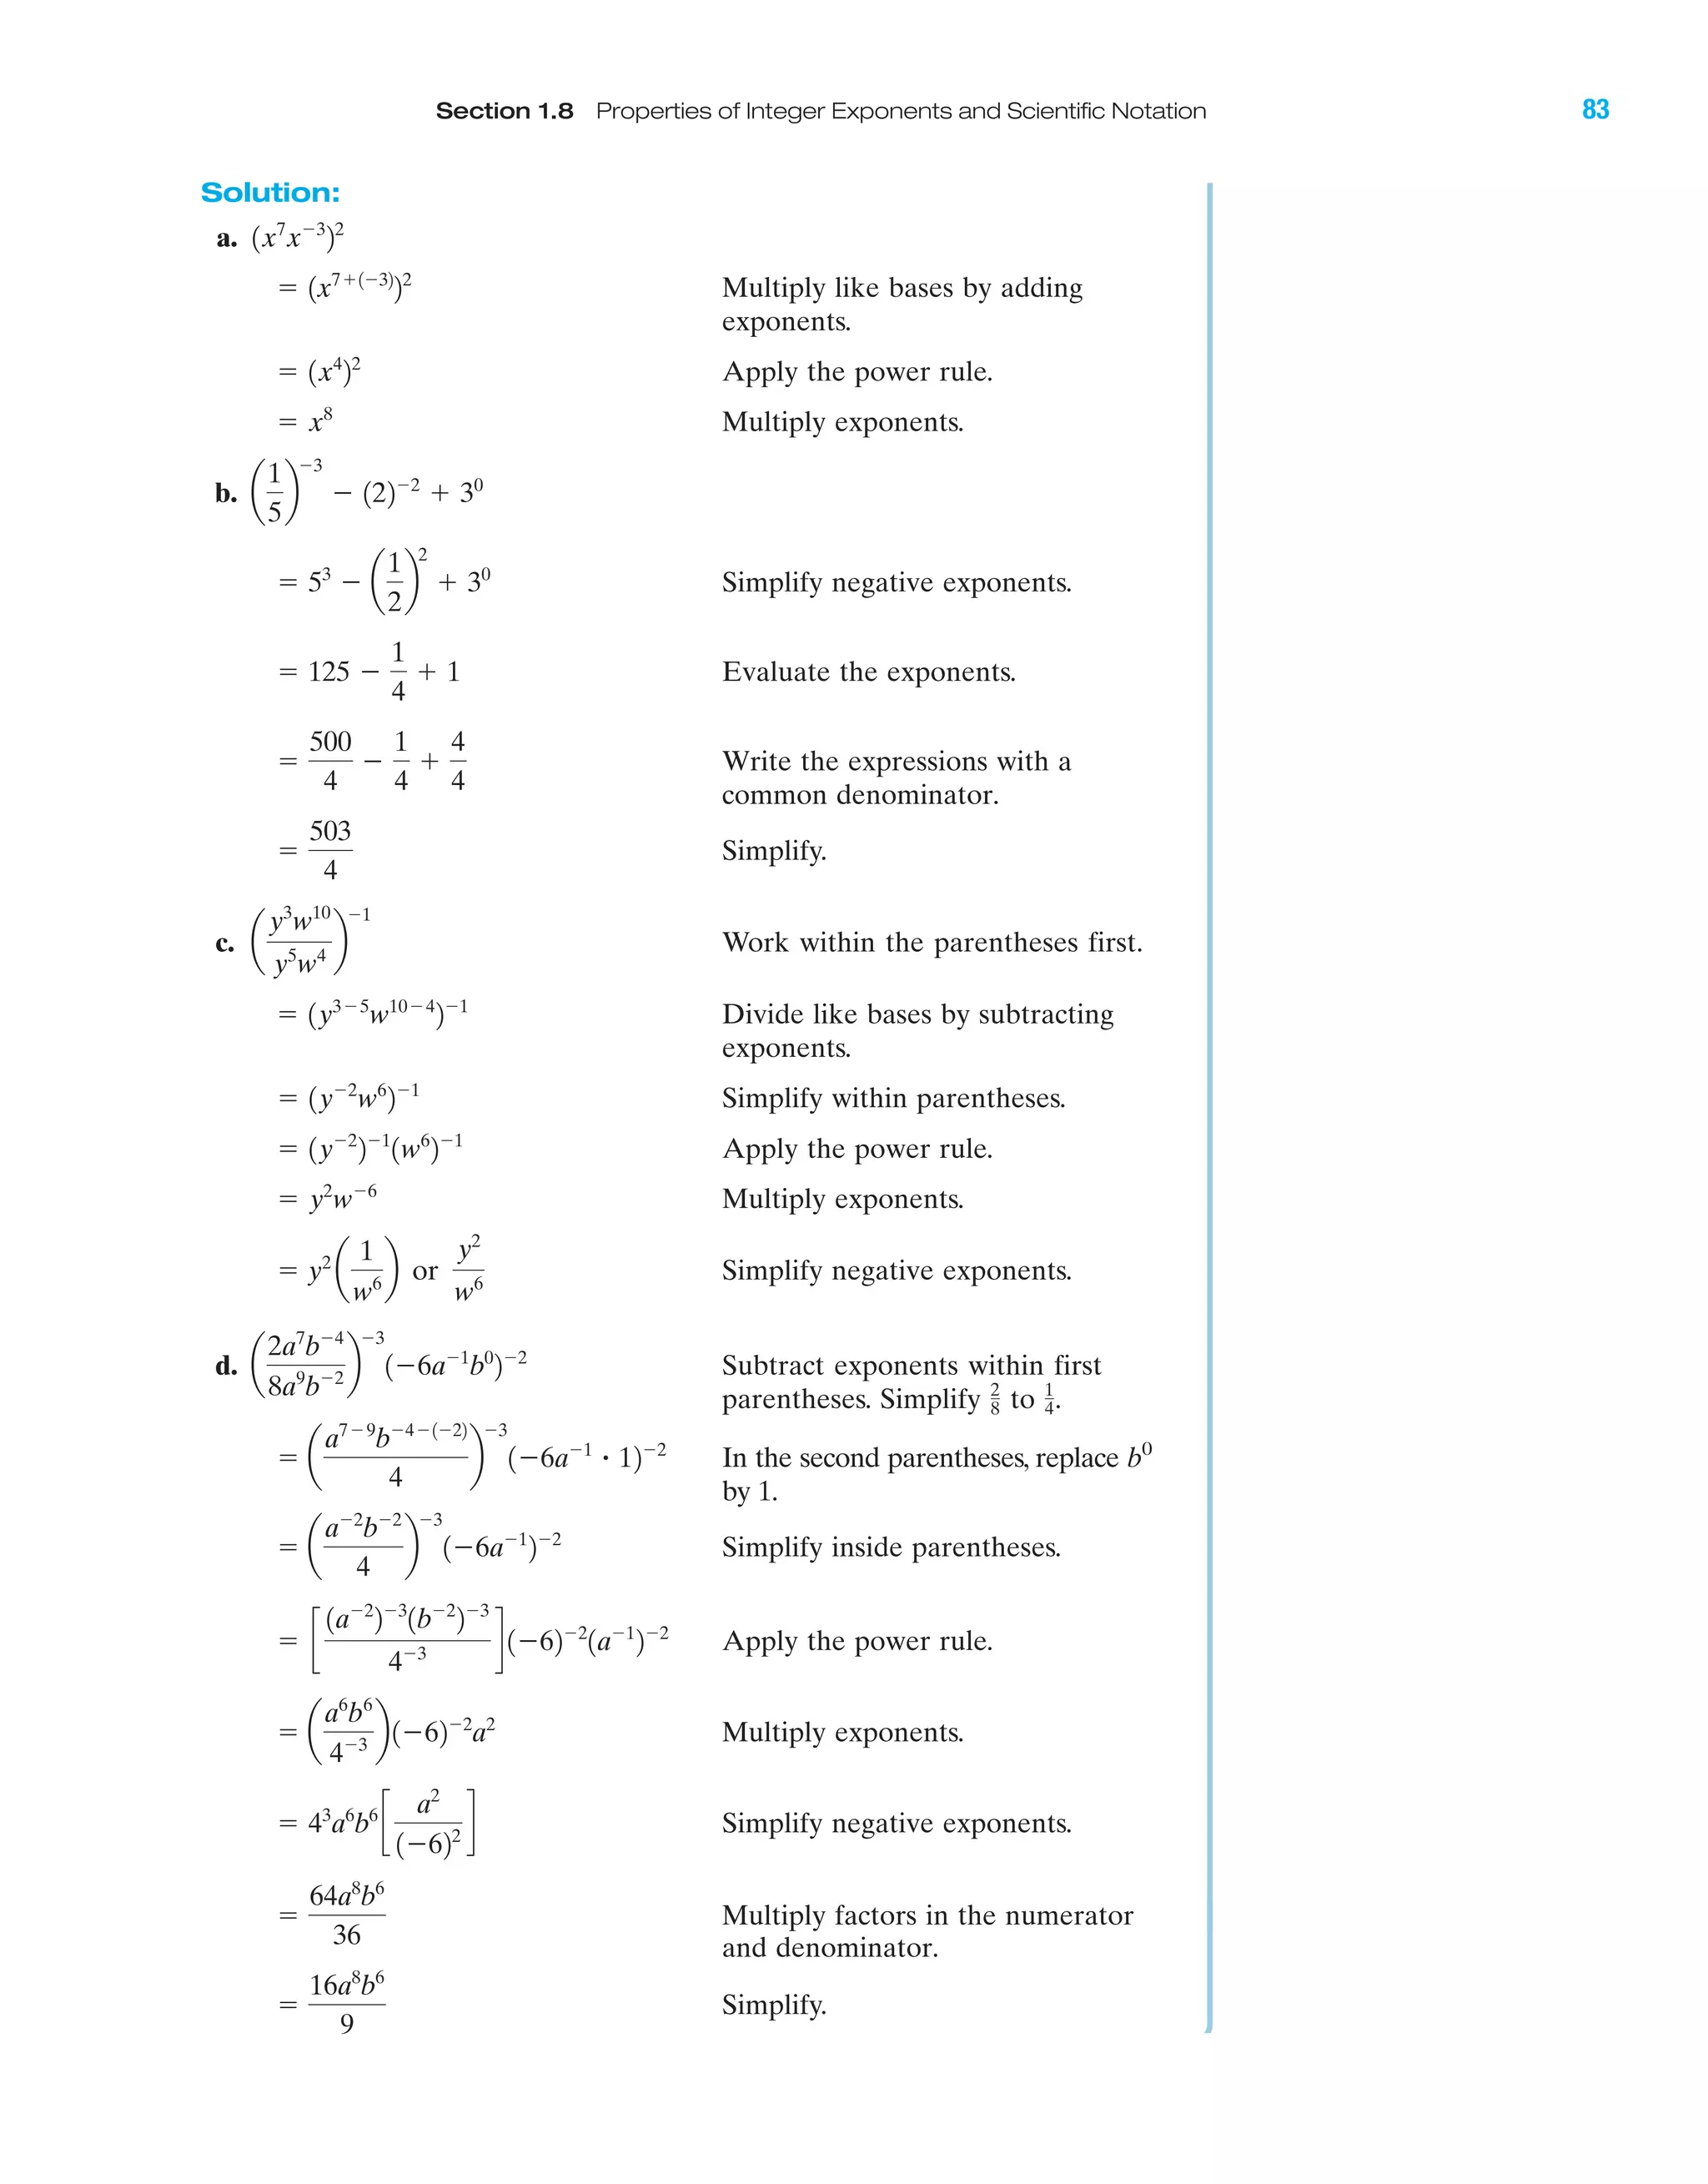 Section 1.8 Properties of Integer Exponents and Scientific Notation 83
Solution:
a. (x⁷x⁻³)²
= (x⁷⁺⁽⁻³⁾)² Multiply like bases by adding
exponents.
= (x⁴)² Apply the power rule.
= x⁸ Multiply exponents.
b. (1/5)⁻³ − (2)⁻² + 3⁰
= 5³ − (1/2)² + 3⁰ Simplify negative exponents.
= 125 − 1/4 + 1 Evaluate the exponents.
= 500/4 − 1/4 + 4/4 Write the expressions with a
common denominator.
= 503/4 Simplify.
c. (y³w¹⁰/y⁵w⁴)⁻¹ Work within the parentheses first.
= (y³⁻⁵w¹⁰⁻⁴)⁻¹ Divide like bases by subtracting
exponents.
= (y⁻²w⁶)⁻¹ Simplify within parentheses.
= (y⁻²)⁻¹(w⁶)⁻¹ Apply the power rule.
= y²w⁻⁶ Multiply exponents.
= y²(1/w⁶) or y²/w⁶ Simplify negative exponents.
d. (2a⁷b⁻⁴/8a⁹b⁻²)⁻³(−6a⁻¹b⁰)⁻² Subtract exponents within first
parentheses. Simplify 2/8 to 1/4.
= (a⁷⁻⁹b⁻⁴⁻⁽⁻²⁾/4)⁻³(−6a⁻¹ · 1)⁻² In the second parentheses, replace b⁰
by 1.
= (a⁻²b⁻²/4)⁻³(−6a⁻¹)⁻² Simplify inside parentheses.
= [(a⁻²)⁻³(b⁻²)⁻³/4⁻³](−6)⁻²(a⁻¹)⁻² Apply the power rule.
= (a⁶b⁶/4⁻³)(−6)⁻²a² Multiply exponents.
= 4³a⁶b⁶[a²/(−6)²] Simplify negative exponents.
= 64a⁸b⁶/36 Multiply factors in the numerator
and denominator.
= 16a⁸b⁶/9 Simplify.